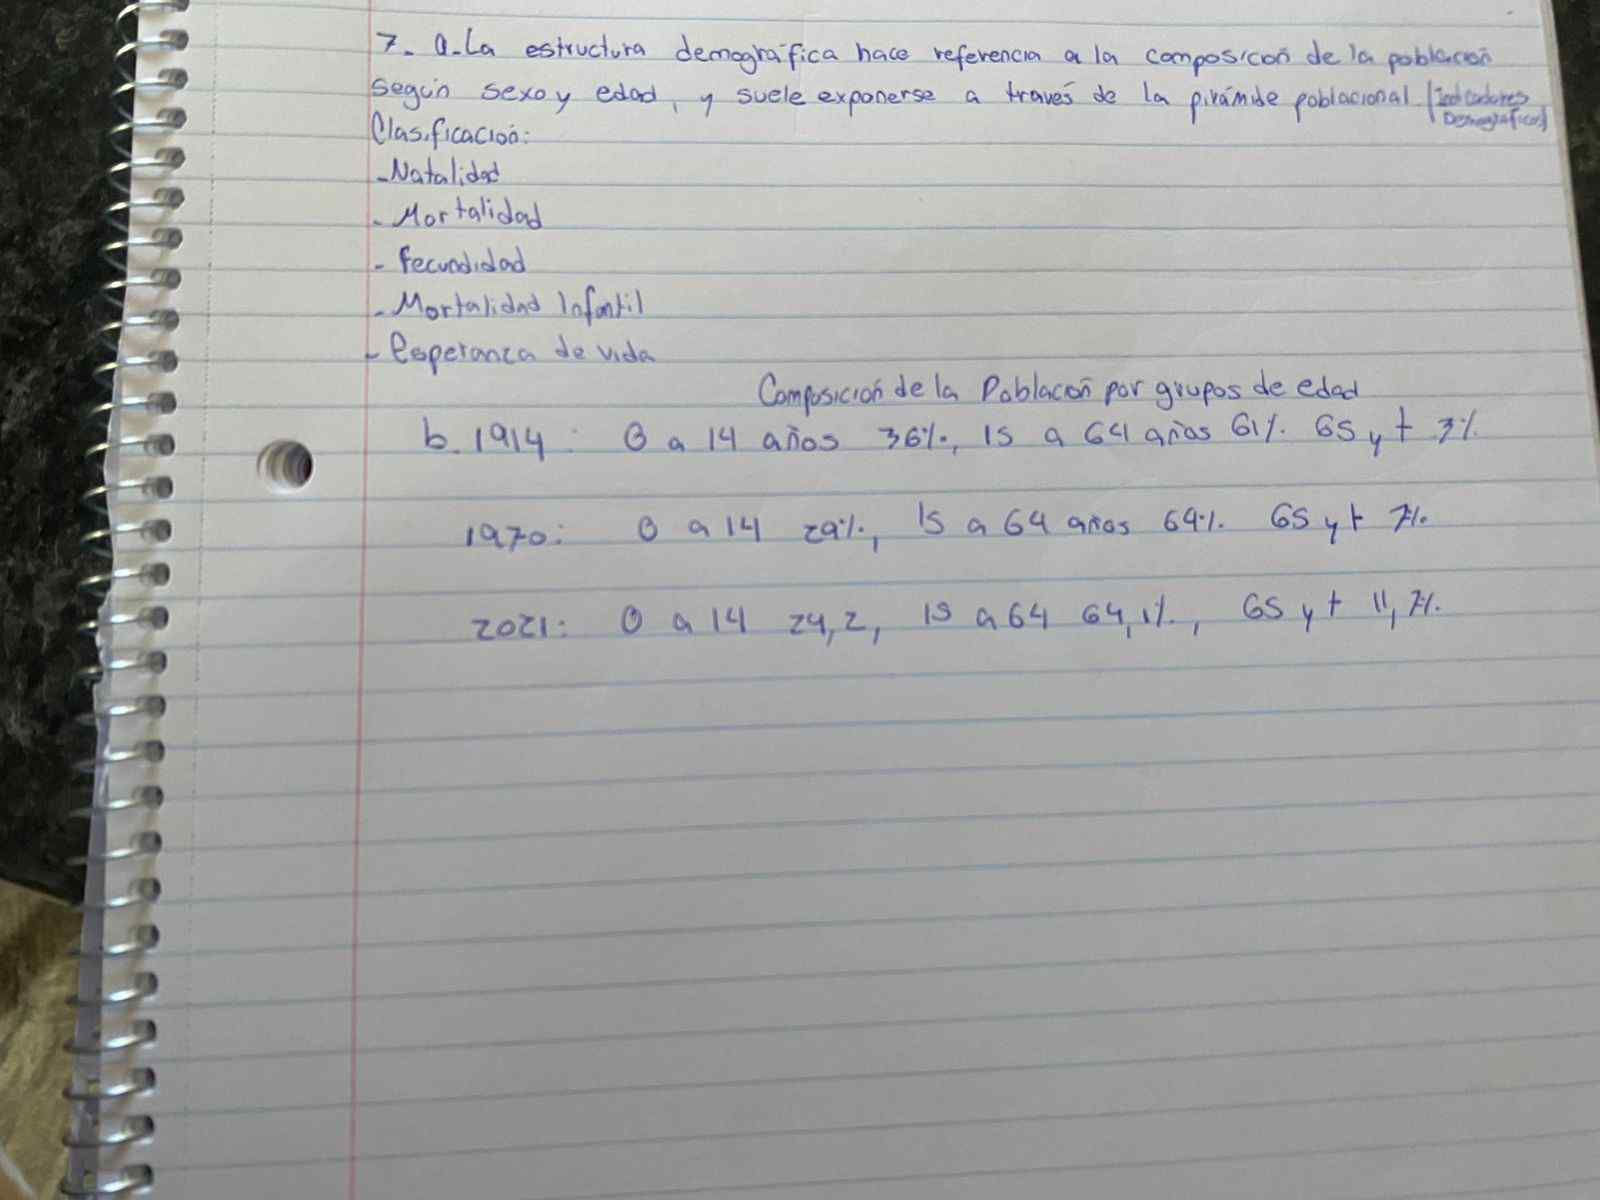 7- a-La estructura demográfica hace referencia a la composición de la población
según sexo y edad, y suele exponerse a través de la pirámide poblacional (Indicadores
Demográficos)
Clasificación:
-Natalidad
- Mortalidad
- fecundidad
- Mortalidad Infantil
- Esperanza de vida
Composición de la Población por grupos de edad
b. 1914: 0 a 14 años 36%, 15 a 64 años 61%. 65 y + 3%
1970: 0 a 14 29%, 15 a 64 años 64%. 65 y + 7%.
2021: 0 a 14 24,2, 15 a 64 64,1%., 65 y + 11,7%.